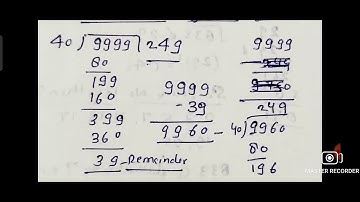 40) 9999 (249
80
199
160
399
360
39 - Remainder
9999
- 39
9960
9999
249
40) 9960
80
196
MASTER RECORDER